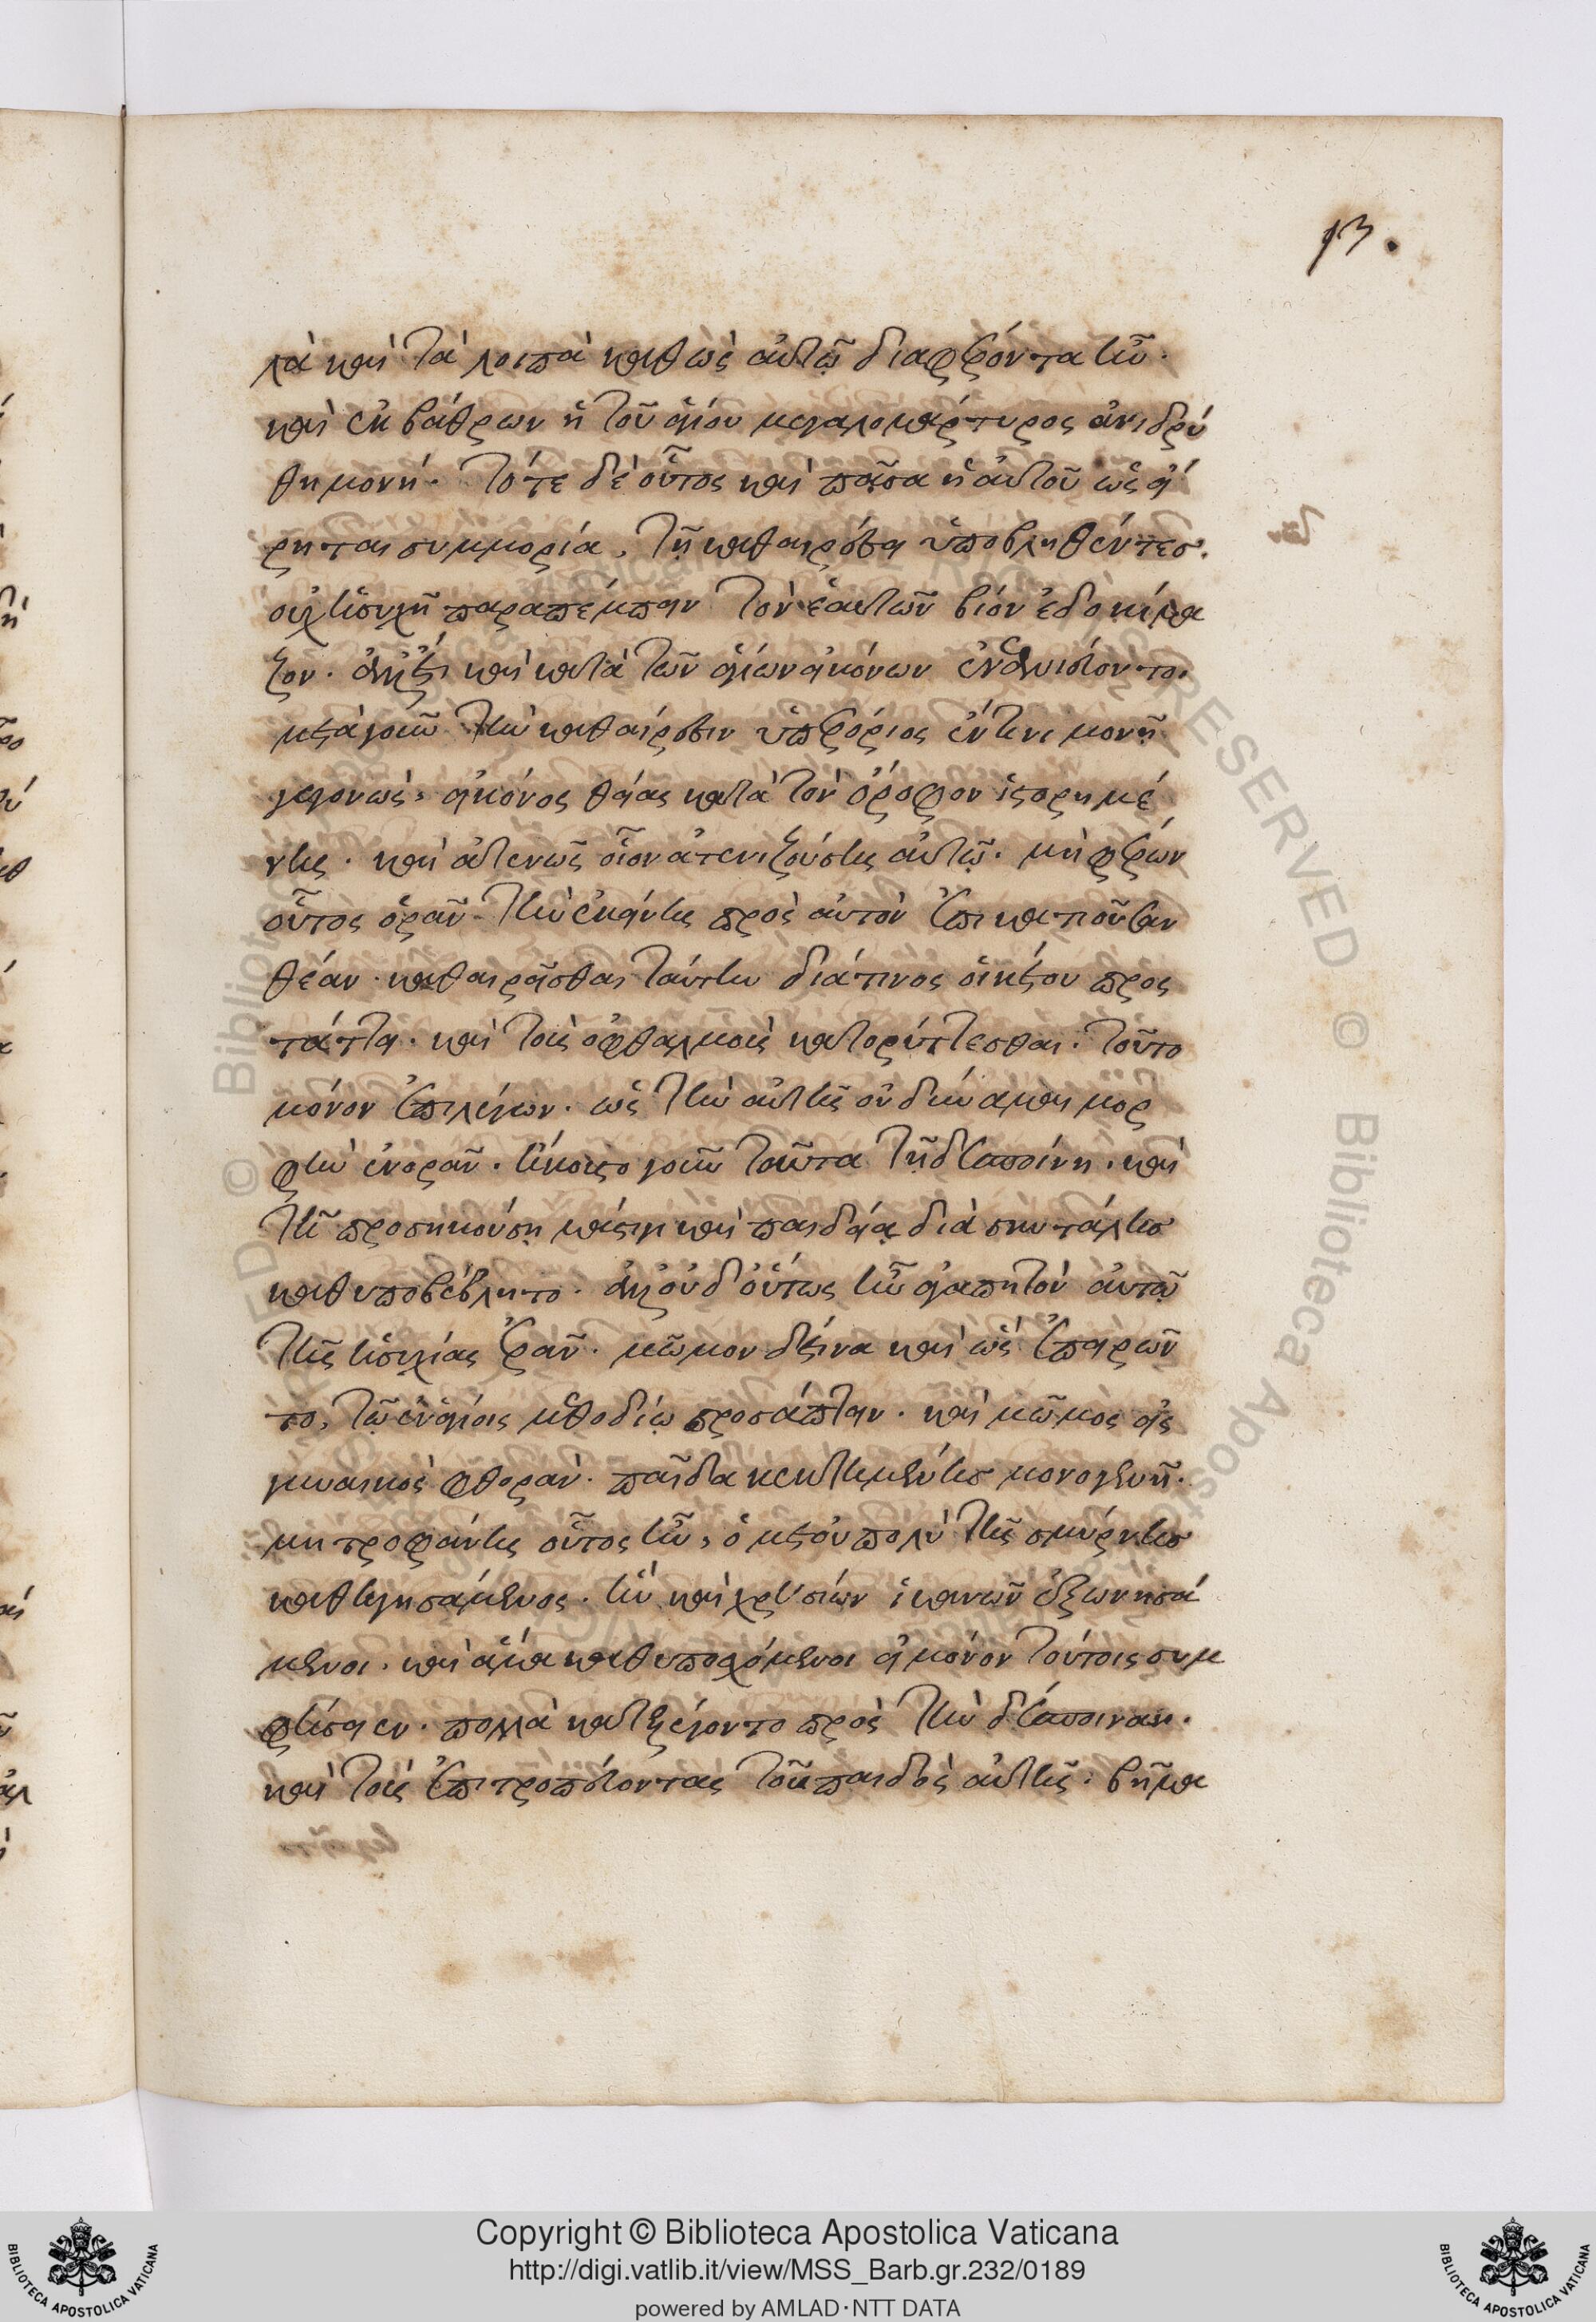 13.
λὰ καὶ τὰ λοιπὰ καθὼς αὐτῷ διαφέροντα ἦν.
καὶ ἐκ βάθρων ἡ τοῦ ἁγίου μεγαλομάρτυρος ἀνιδρύ
θη μονή. τότε δὲ οὗτος καὶ πᾶσα ἡ αὐτοῦ ὡς εἴ
ρηται συμμορία, τῇ καθαιρέσει ὑποβληθέντες.
οὐχ ἡσυχῇ παραπέμπειν τὸν ἑαυτῶν βίον ἐδοκίμα
ζον. ἀλλ' ἔτι καὶ κατὰ τῶν ἁγίων εἰκόνων
μετὰ γοῦν τὴν καθαίρεσιν ὑπερόριος ἔν τινι μονῇ
γεγονὼς, εἰκόνος θείας κατὰ τὸν ὄροφον ἱστορημέ
νης. καὶ ἀτενῶς οἷον ἀτενιζούσης αὐτῷ. μὴ φέρων
οὗτος ὁρᾶν τὴν ἐκείνης πρὸς αὐτὸν
θέαν. καθαιρεῖσθαι ταύτην διά τινος οἰκείου προς
τάττει. καὶ τοὺς ὀφθαλμοὺς κατορύττεσθαι. τοῦτο
μόνον ἐπιλέγων. ὡς τὴν αὐτῆς οὐ δύναμαι μορ
φὴν ἐνορᾶν. ἠκούετο γοῦν ταῦτα τῇ δεσποίνῃ. καὶ
τῇ προσηκούσῃ μάστιγι καὶ παιδείᾳ διὰ σκυτάλης
καθυποβέβλητο. ἀλλ' οὐδ' οὕτως ἦν ἀγαπητὸν αὐτῷ
τῆς ἡσυχίας ἐρᾶν. μῶμον δέ τινα καὶ ὡς
το, τῷ ἐν ἁγίοις μεθοδίῳ προσάπτειν. καὶ μῶμος εἰς
γυναικὸς φθορὰν. παῖδα κεκτημένης μονογενῆ.
μητροφάνης οὗτος ἦν, ὁ μετ' οὐ πολὺ τῆς σμύρνης
καθηγησάμενος. ἣν καὶ χρυσίων ἱκανῶν ἐξωνησά
μενοι. καὶ ἅμα καθυποσχόμενοι εἰ μόνον τούτοις συμ
φήσειεν. πολλὰ κατελέγοντο πρὸς τὴν δέσποιναν.
καὶ τοὺς ἐπιτροπεύοντας τοῦ παιδὸς αὐτῆς. βῆμα